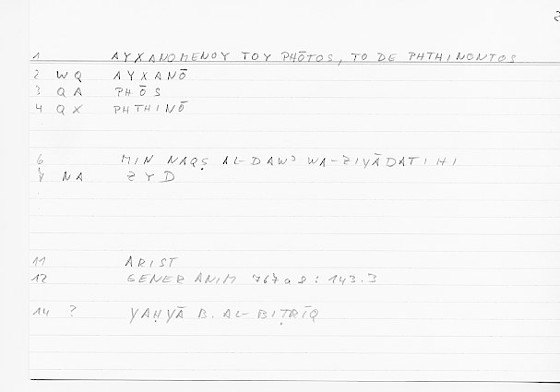 1 AYXANOMENOY TOY PHŌTOS, TO DE PHTHINONTOS
2 WQ AYXANŌ
3 QA PHŌS
4 QX PHTHINŌ
6 MIN NAQṢ AL-ḌAWʾ WA-ZIYĀDATIHI
8 NA ZYD
11 ARIST
12 GENER ANIM 767a2 : 143.3
14 ? YAḤYĀ B. AL-BIṬRĪQ